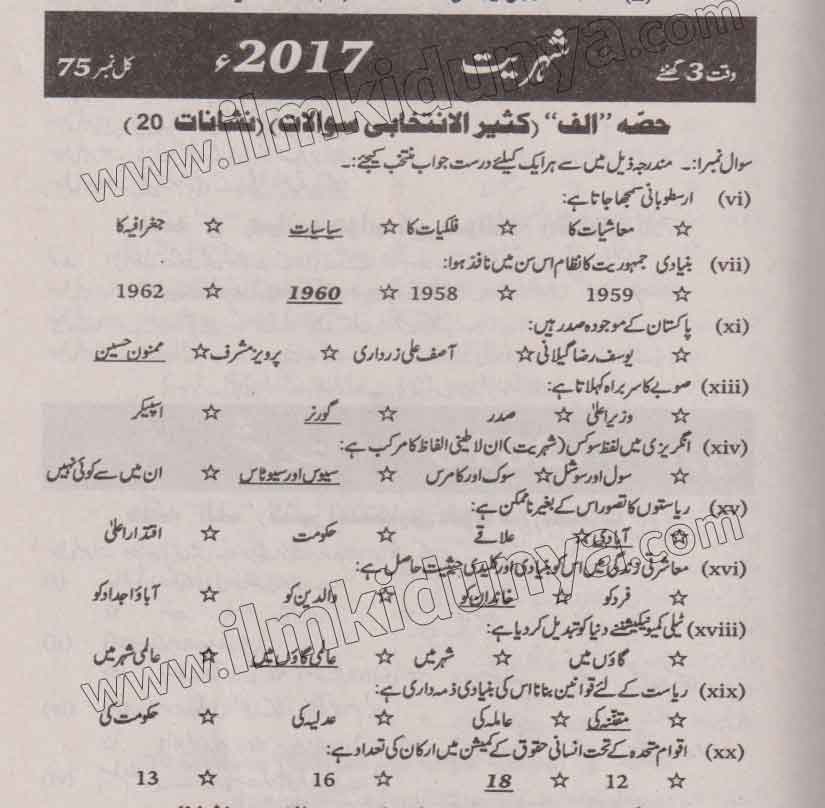 وقت 3 گھنٹے شہریت 2017ء کل نمبر 75
حصّہ ”الف“ (کثیر الانتخابی سوالات) (نشانات 20)
سوال نمبرا:۔ مندرجہ ذیل میں سے ہر ایک کیلئے درست جواب منتخب کیجئے:۔
(vi) ارسطو بانی سمجھا جاتا ہے:
☆ معاشیات کا ☆ فلکیات کا ☆ سیاسیات ☆ جغرافیہ کا
(vii) بنیادی جمہوریت کا نظام اس سن میں نافذ ہوا:
☆ 1959 ☆ 1958 ☆ 1960 ☆ 1962
(xi) پاکستان کے موجودہ صدر ہیں:
☆ یوسف رضا گیلانی ☆ آصف علی زرداری ☆ پرویز مشرف ☆ ممنون حسین
(xiii) صوبے کا سربراہ کہلاتا ہے:
☆ وزیر اعلیٰ ☆ صدر ☆ گورنر ☆ اسپیکر
(xiv) انگریزی میں لفظ سوکس (شہریت) ان لاطینی الفاظ کا مرکب ہے:
☆ سول اور سوشل ☆ سوک اور کامرس ☆ سیوس اور سیوٹاس ☆ ان میں سے کوئی نہیں
(xv) ریاستوں کا تصور اس کے بغیر ناممکن ہے:
☆ آبادی ☆ علاقے ☆ حکومت ☆ اقتدار اعلیٰ
(xvi) معاشرتی زندگی میں اس کو بنیادی اور کلیدی حیثیت حاصل ہے:
☆ فرد کو ☆ خاندان کو ☆ والدین کو ☆ آباؤ اجداد کو
(xviii) ٹیلی کمیونیکیشن نے دنیا کو تبدیل کر دیا ہے:
☆ گاؤں میں ☆ شہر میں ☆ عالمی گاؤں میں ☆ عالمی شہر میں
(xix) ریاست کے لئے قوانین بنانا اس کی بنیادی ذمہ داری ہے:
☆ مقننہ کی ☆ عاملہ کی ☆ عدلیہ کی ☆ حکومت کی
(xx) اقوام متحدہ کے تحت انسانی حقوق کے کمیشن میں ارکان کی تعداد ہے:
☆ 12 ☆ 18 ☆ 16 ☆ 13
www.ilmkidunya.com
www.ilmkidunya.com